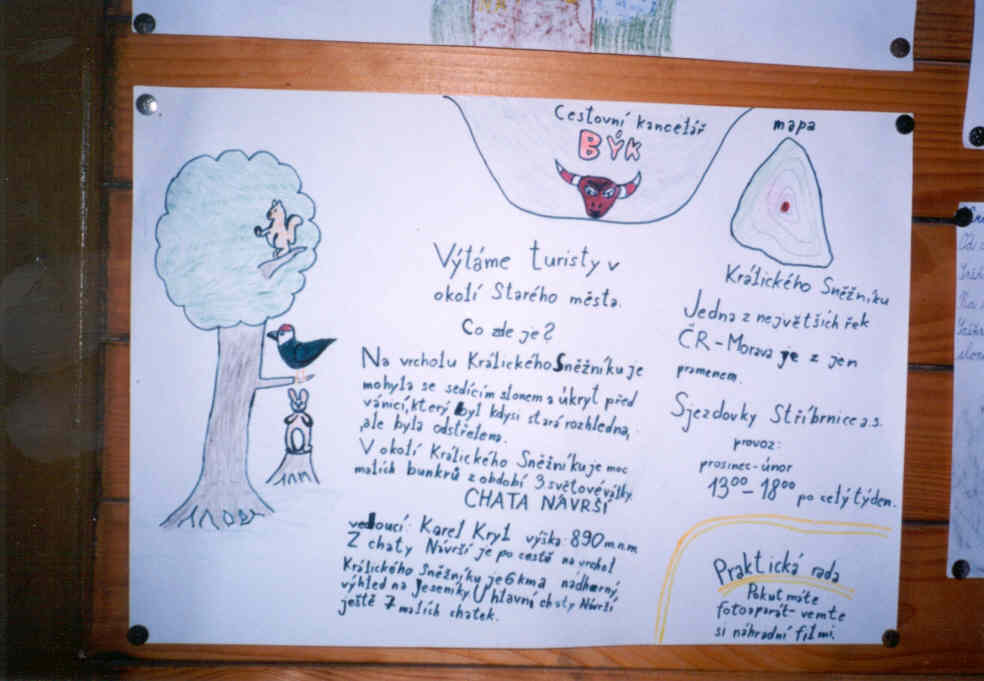 Cestovní kancelář
BÝK
mapa
Výtáme turisty v
okolí Starého města.
Co zde je?
Na vrcholu Králického Sněžníku je
mohyla se sedícím slonem a úkryt před
vánicí, který byl kdysi stará rozhledna,
ale byla odstřelena.
V okolí Králického Sněžníku je moc
malich bunkrů z období 3 světové války.
CHATA NÁVRŠÍ
vedoucí: Karel Kryl výška: 890 m.n.m
Z chaty Návrší je po cestě na vrchol
Králického Sněžníku je 6 km a nádherný
výhled na Jeseníky U hlavní chaty Návrší,
ještě 7 malich chatek.
Králického Sněžníku
Jedna z největších řek
ČR-Morava je z jen
pramenem.
Sjezdovky Stříbrnice a.s.
provoz:
prosinec-únor
13⁰⁰-18⁰⁰ po celý týden.
Praktická rada
Pokut máte
fotoaparát-vemte
si náhradní filmi.